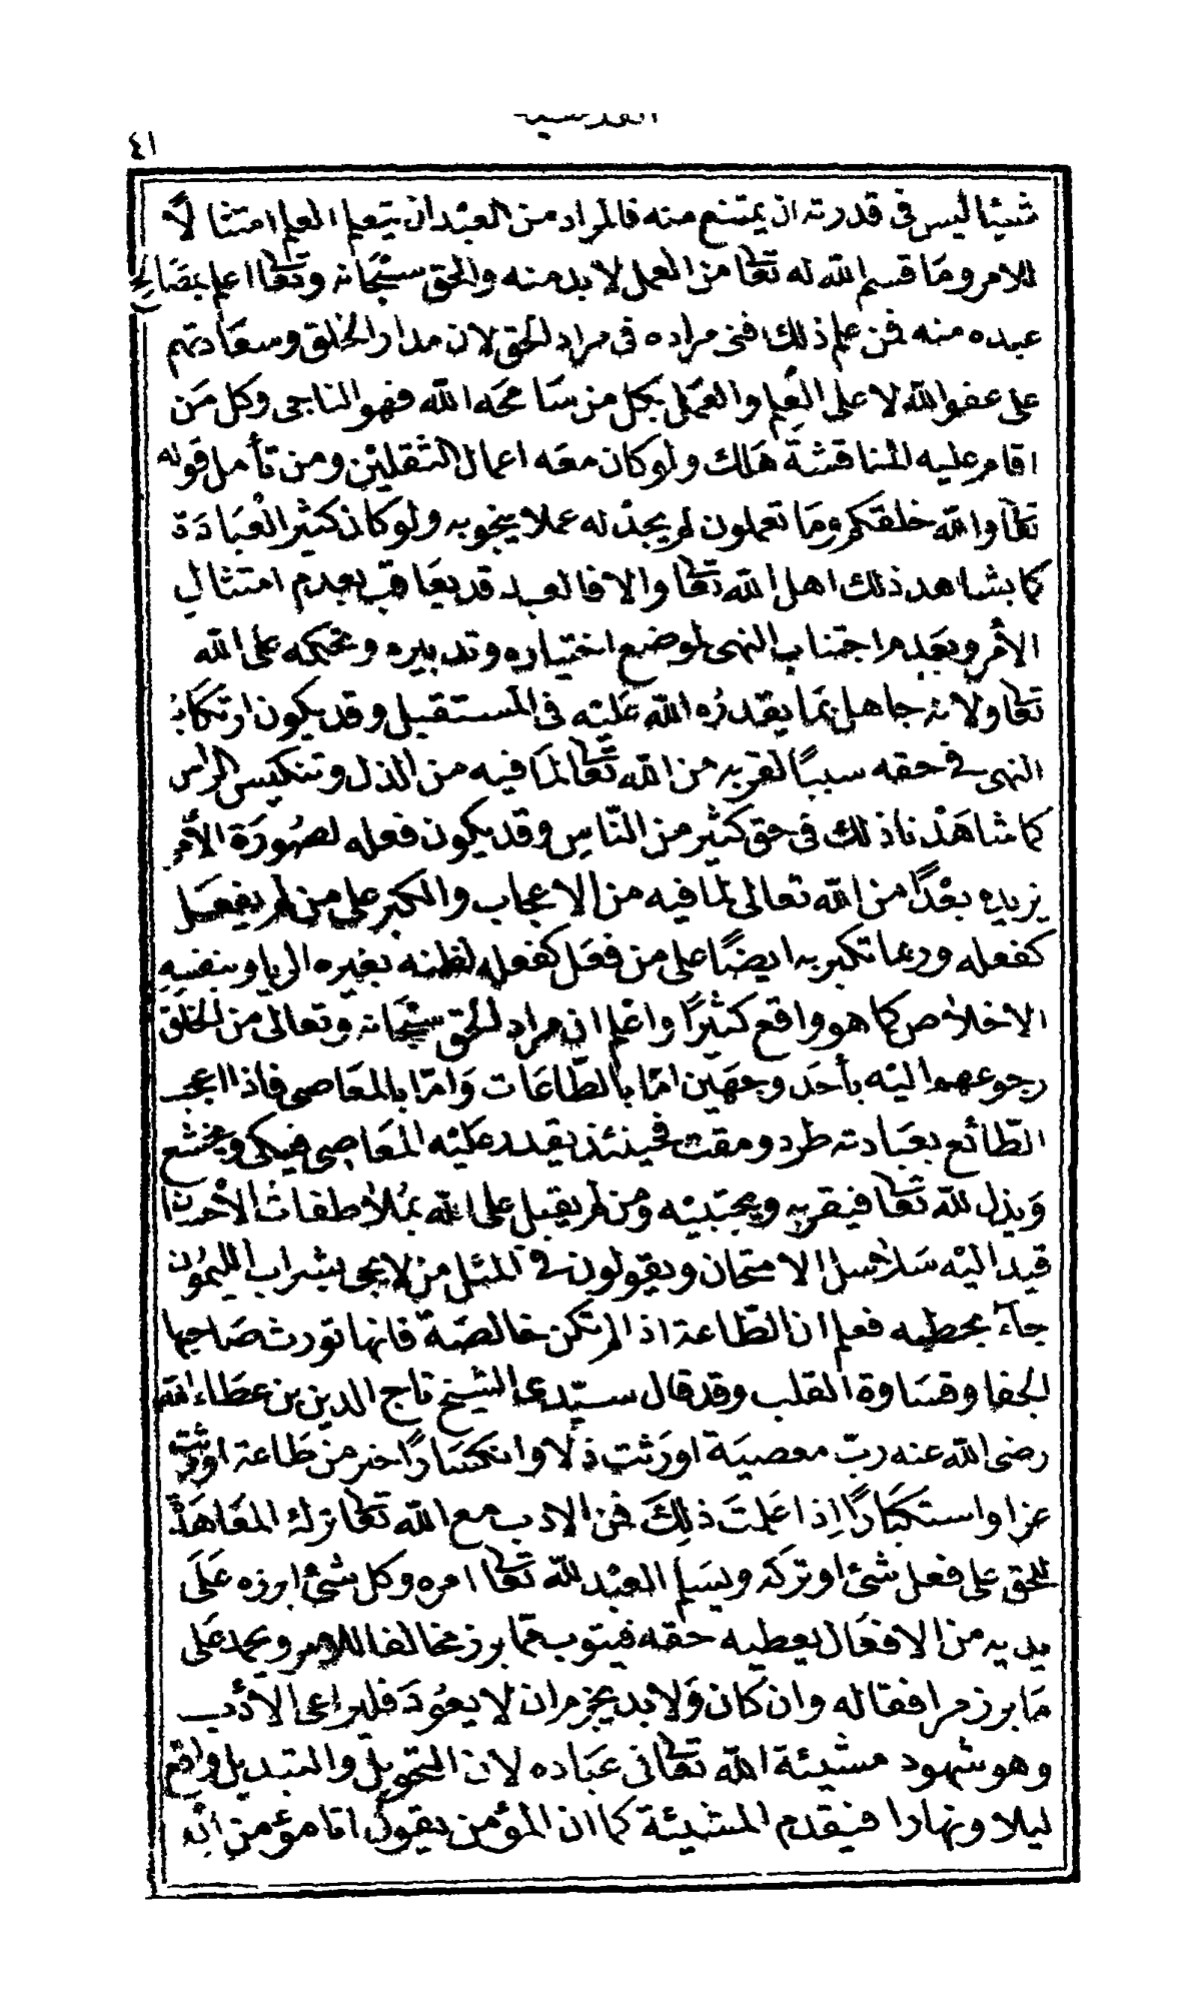 القدسية
٤١
شيئا ليس فى قدرته ان يمتنع منه فالمراد من العبدان يتعلم العلم امتثا لاً
للامر وما قسم الله له تعالى من العمل لا بد منه والحق سبحانه وتعالى اعلم بمصالح
عبده منه فمن علم ذلك فنى مراده فى مراد الحق لان مدار الخلق وسعادتهم
على عفو الله لا على العلم والعمل بكل من سامحه الله فهو الناجى وكل من
اقام عليه المناقشة هلك ولو كان معه اعمال الثقلين ومن تأمل قوله
تعالى والله خلقكم وما تعملون لم يجد له عملا ينجو به ولو كان كثير العبادة
كما يشاهد ذلك اهل الله تعالى والا فالعبد قد يعاقب بعدم امتثال
الأمر وبعدم اجتناب النهى لموضع اختياره وتدبيره وتحكمه على الله
تعالى ولانه جاهل بما يقدره الله عليه فى المستقبل وقد يكون ارتكابه
النهى فى حقه سببًا لقربه من الله تعالى لما فيه من الذل وتنكيس الرأس
كما شاهدنا ذلك فى حق كثير من النّاس وقد يكون فعله لصورة الأمر
يزيده بعدًا من الله تعالى لما فيه من الاعجاب والكبر على من لم يفعل
كفعله وربما تكبر به ايضًا على من فعل كفعله لظنه بغيره الريا وبنفسه
الاخلاص كما هو واقع كثيرًا واعلم ان مراد الحق سبحانه وتعالى من الخلق
رجوعهم اليه بأحد وجهين امّا بالطّاعات وامّا بالمعاصى فاذا اعجب
الطّائع بعبادته طرد ومقت فحينئذ يقدر عليه المعاصى فيبكى ويخشع
ويذل لله تعالى فيقربه ويجتبيه ومن لم يقبل على الله بملاطفات الاحسان
قيد اليه بسلاسل الامتحان ويقولون فى المثل من لا يجى بشراب الليمون
جاء بحطبه فعلم ان الطّاعة اذا لم تكن خالصة فانها تورث صاحبها
الجفا وقساوة القلب وقد قال سيّدى الشيخ تاج الدين بن عطاء الله
رضى الله عنه ربّ معصية اورثت ذلا وانكسارًا خير من طاعة اورثت
عزا واستكبارًا إذا علمت ذلك فمن الادب مع الله تعالى ترك المعاهدة
للحق على فعل شئ او تركه ويسلم العبد لله تعالى امره وكل شئ ابرزه على
يديه من الافعال يعطيه حقه فيتوب ممّا برز مخالفا للامر ويحمد على
ما برز موافقا له وان كان ولا بد يجزم ان لا يعود فليراعى الأدب
وهو شهود مشيئة الله تعالى فى عباده لان التحويل والتبديل واقع
ليلا ونهارا فيقدم المشيئة كما ان المؤمن يقول انا مؤمن انه